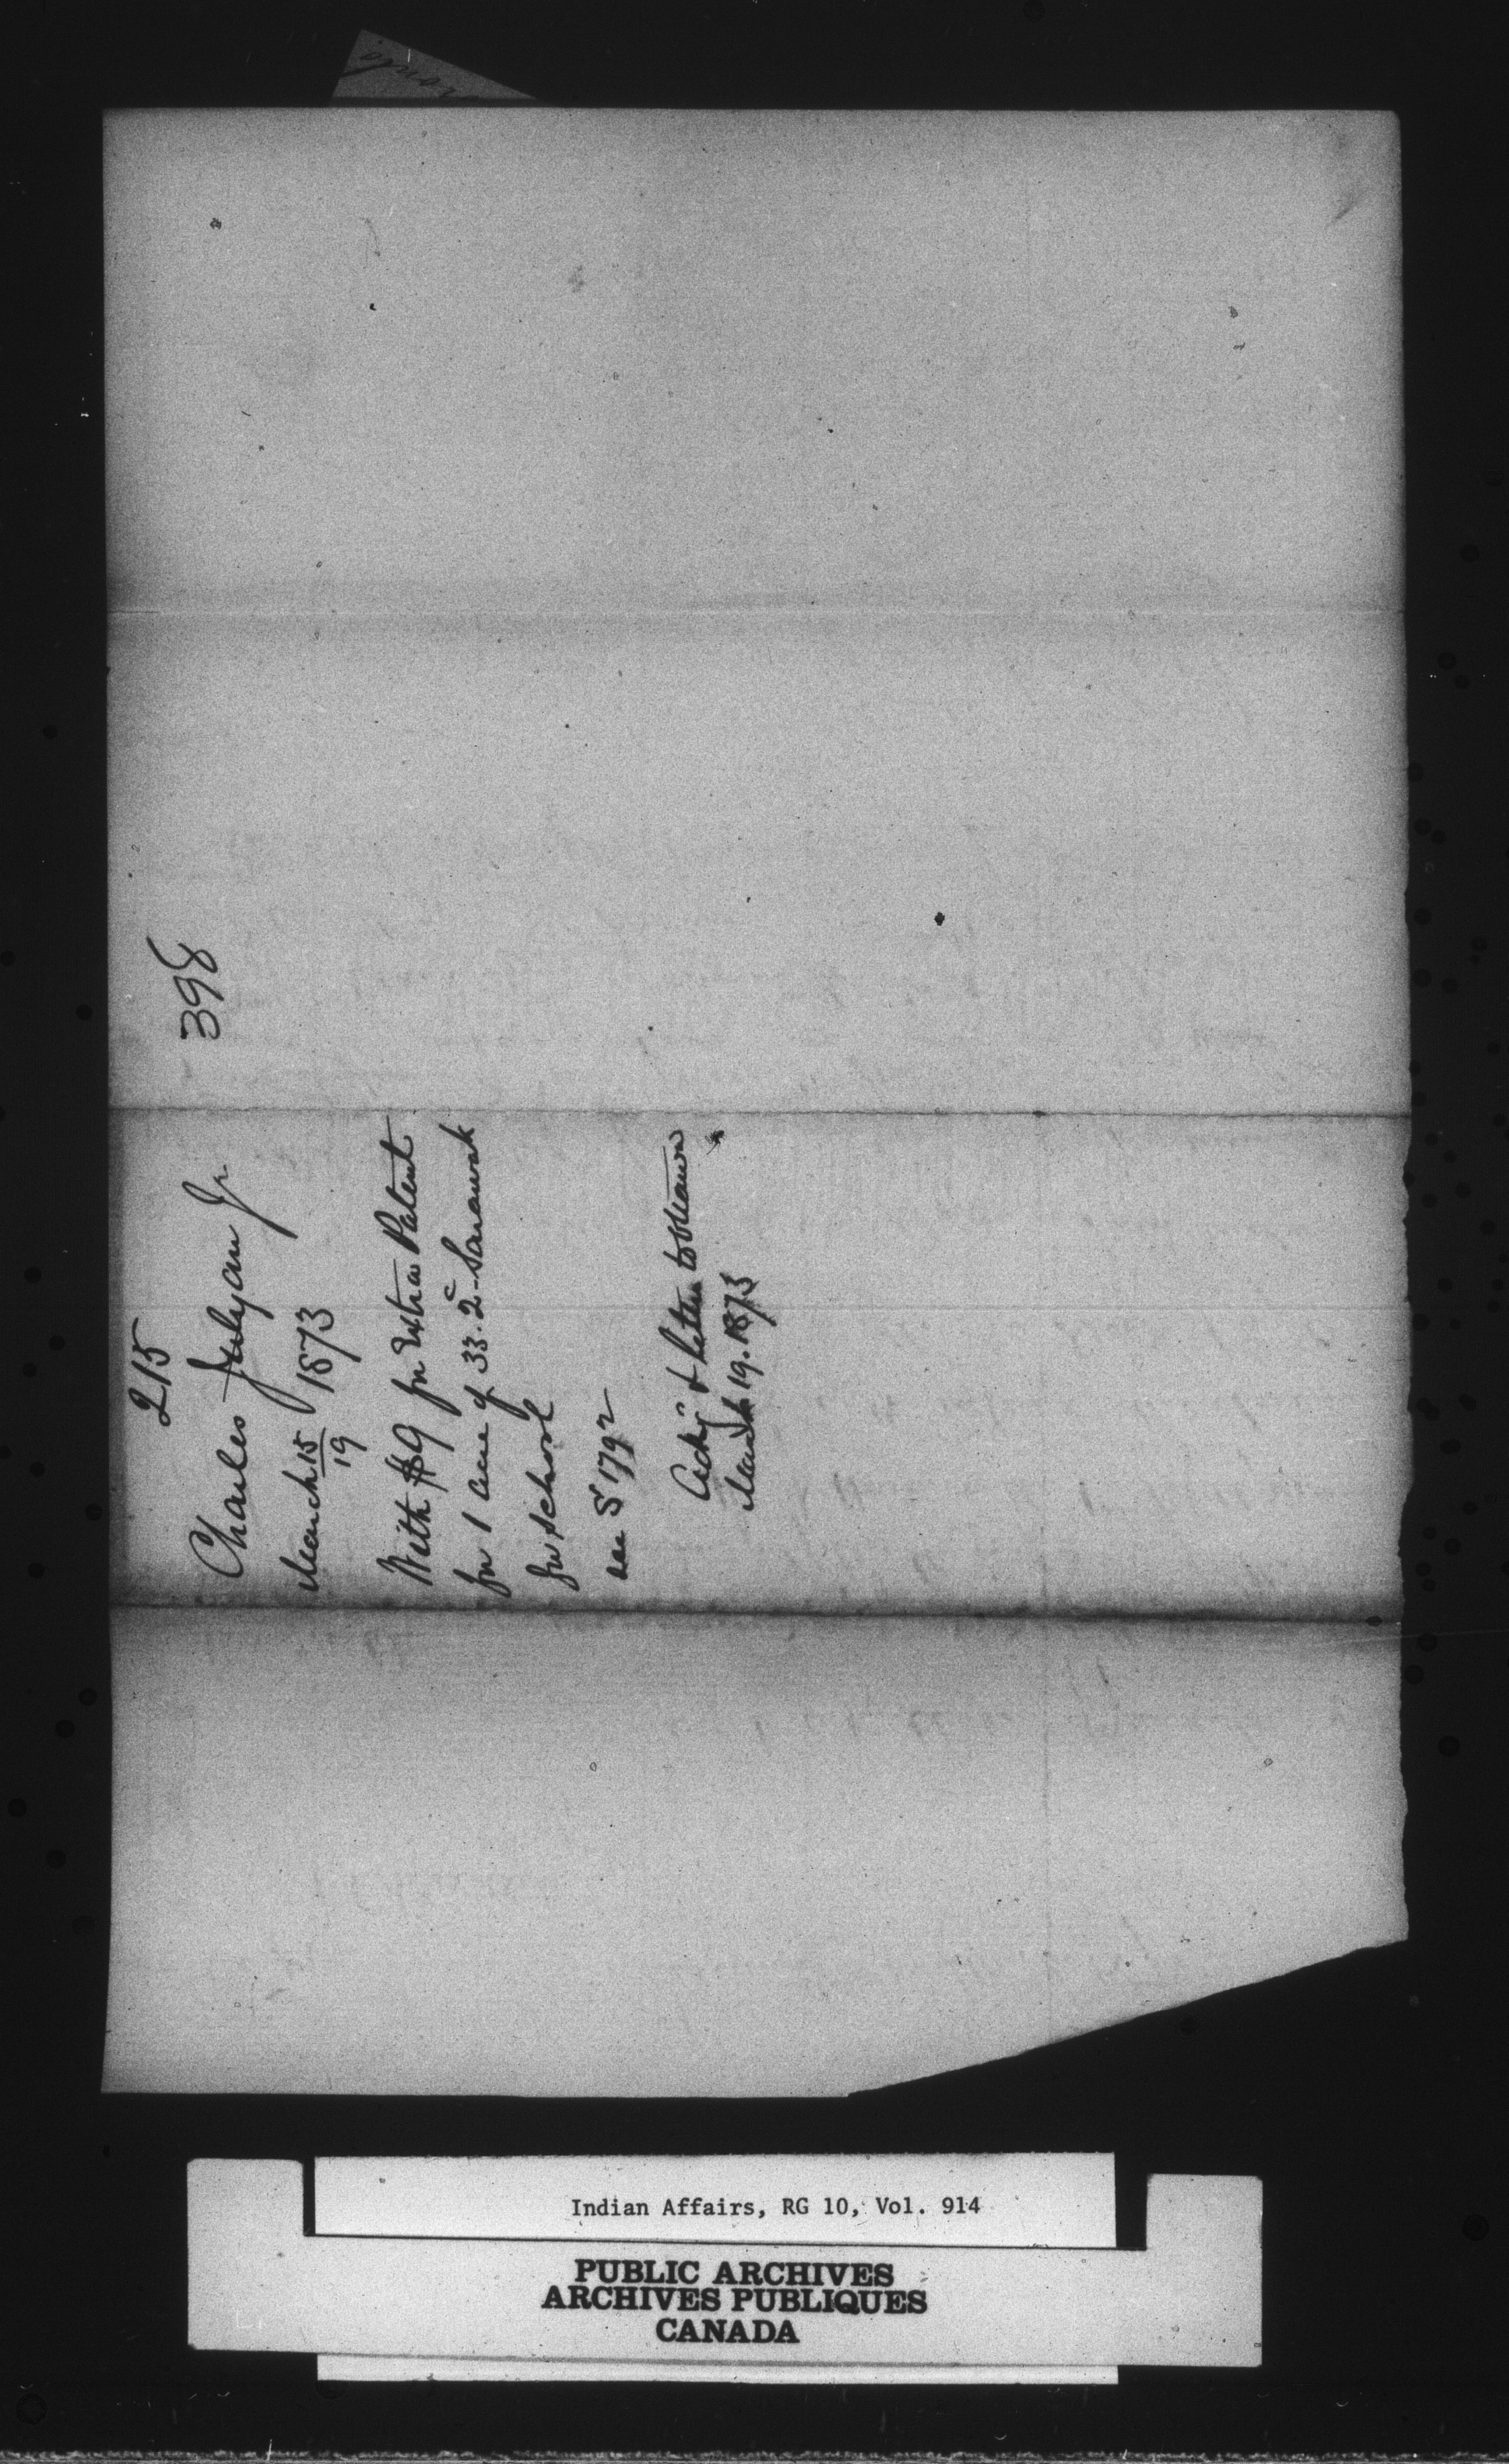 398
215
Charles Julyan Jr
March 15/19 1873
With $9 for Extra Patent
for 1 acre of 33. 2 c - Sarawak
for school
see S 1792
Ackd & letter to
March 19. 1873
Indian Affairs, RG 10, Vol. 914
PUBLIC ARCHIVES
ARCHIVES PUBLIQUES
CANADA